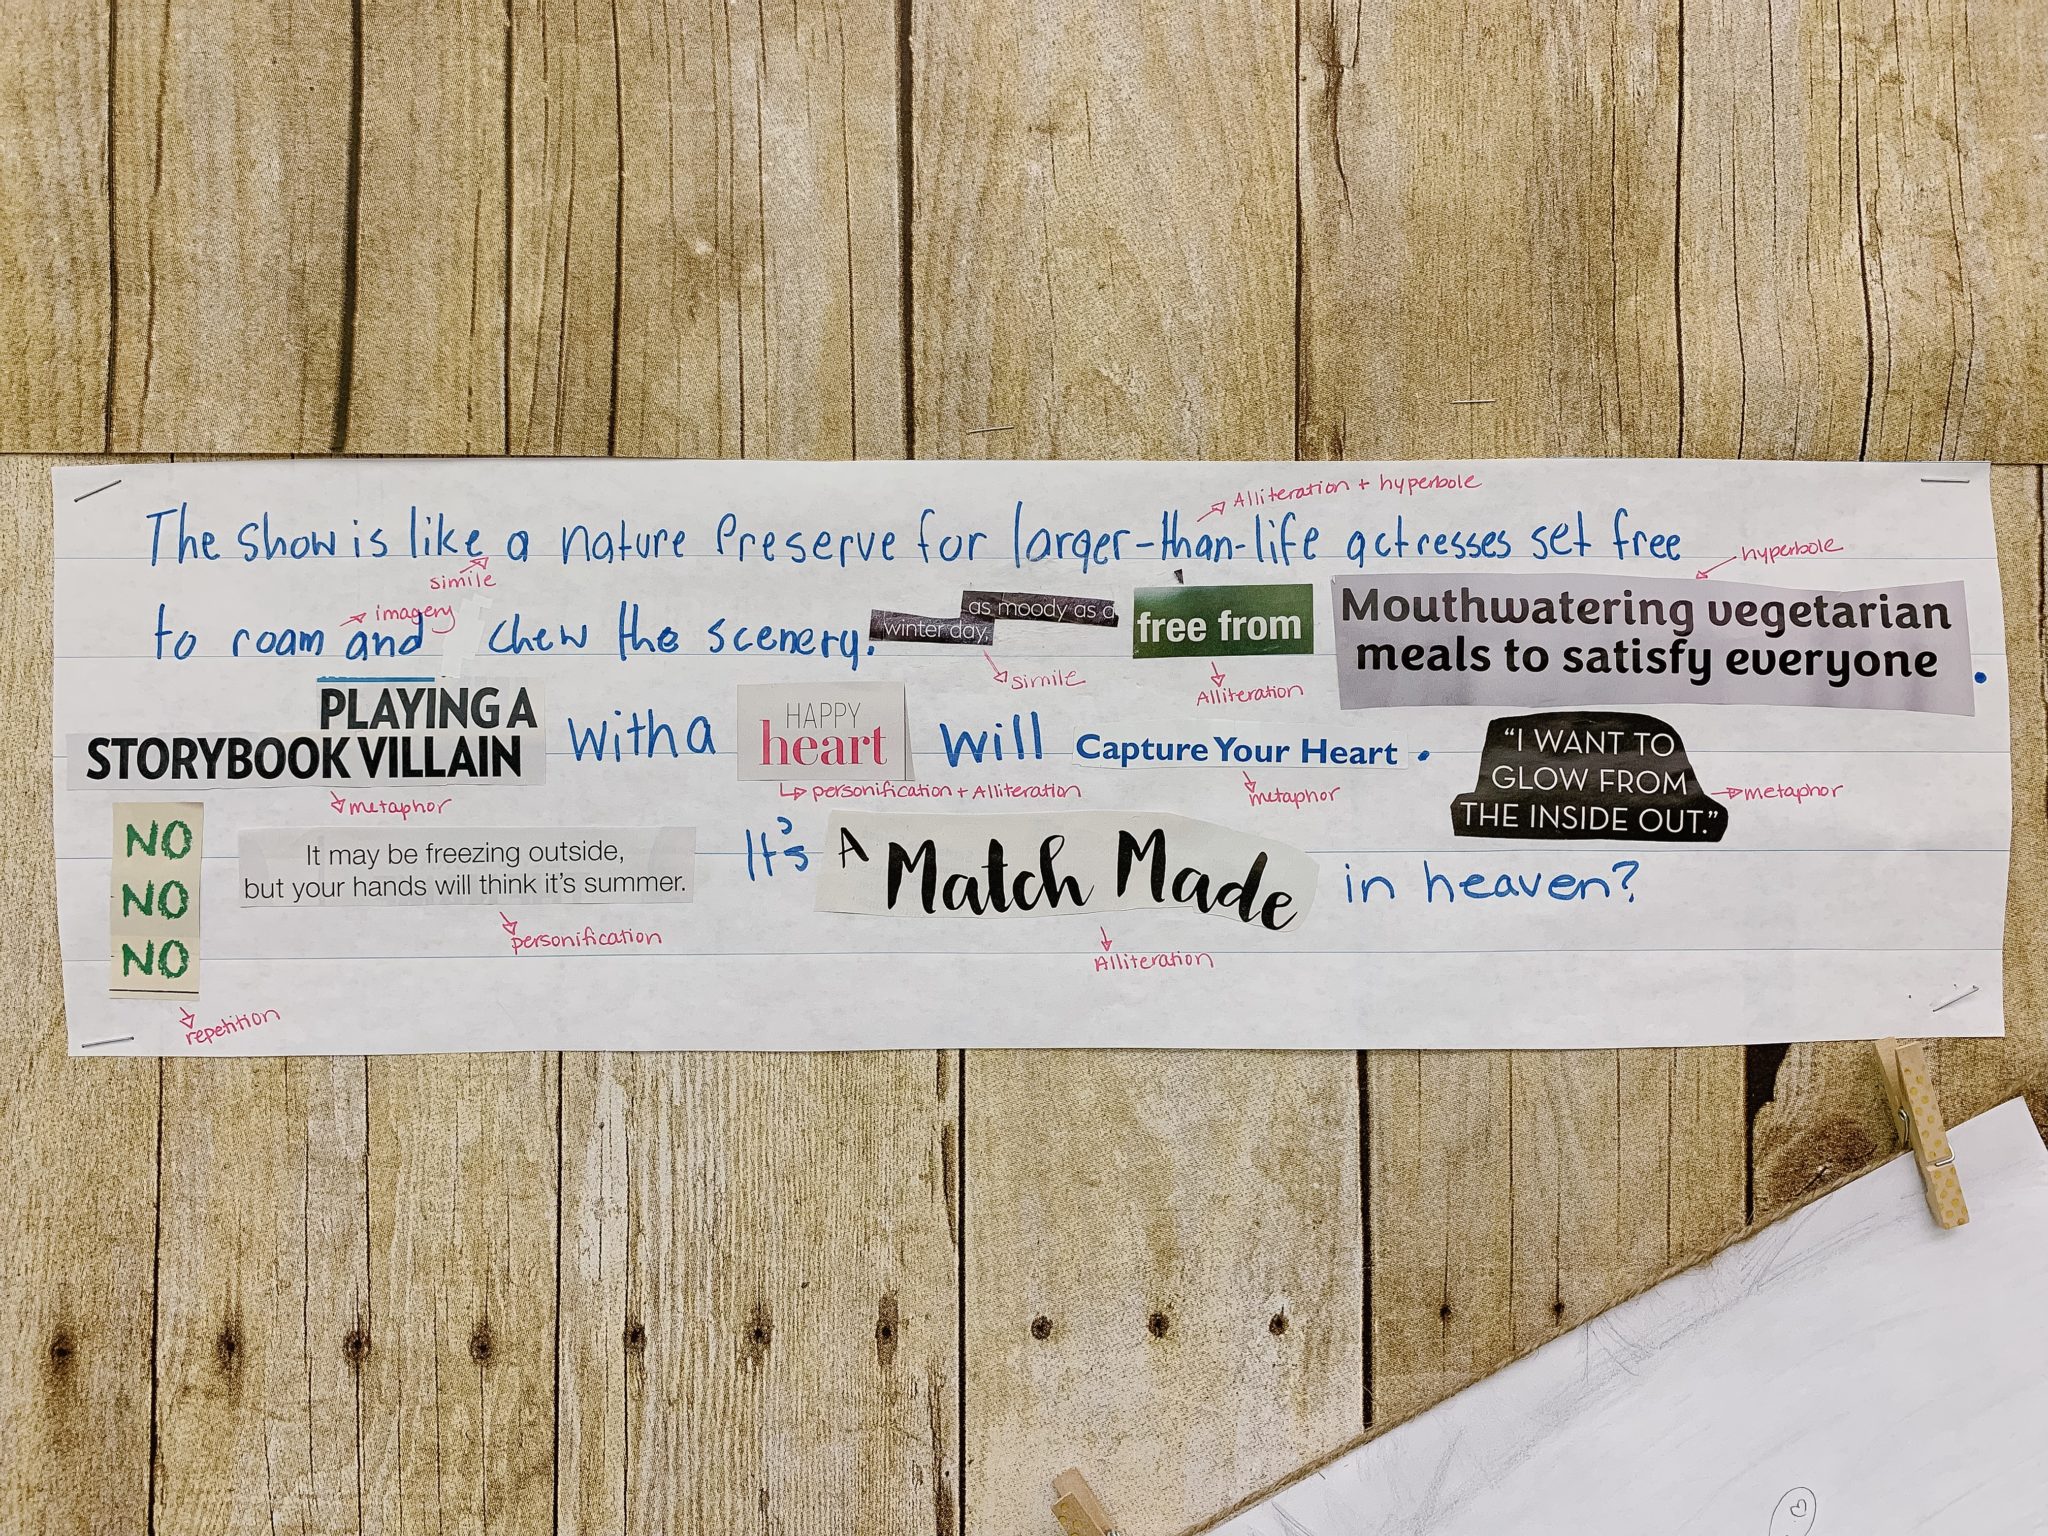 Alliteration + hyperbole
The show is like a nature Preserve for larger-than-life actresses set free
simile
hyperbole
imagery
to roam and chew the scenery. winter day, as moody as a free from Mouthwatering vegetarian
meals to satisfy everyone.
simile
Alliteration
PLAYING A
STORYBOOK VILLAIN with a HAPPY
heart will Capture Your Heart. "I WANT TO
GLOW FROM
THE INSIDE OUT."
metaphor
personification + Alliteration
metaphor
metaphor
NO
NO
NO
It may be freezing outside,
but your hands will think it's summer.
It's A Match Made in heaven?
personification
Alliteration
repetition